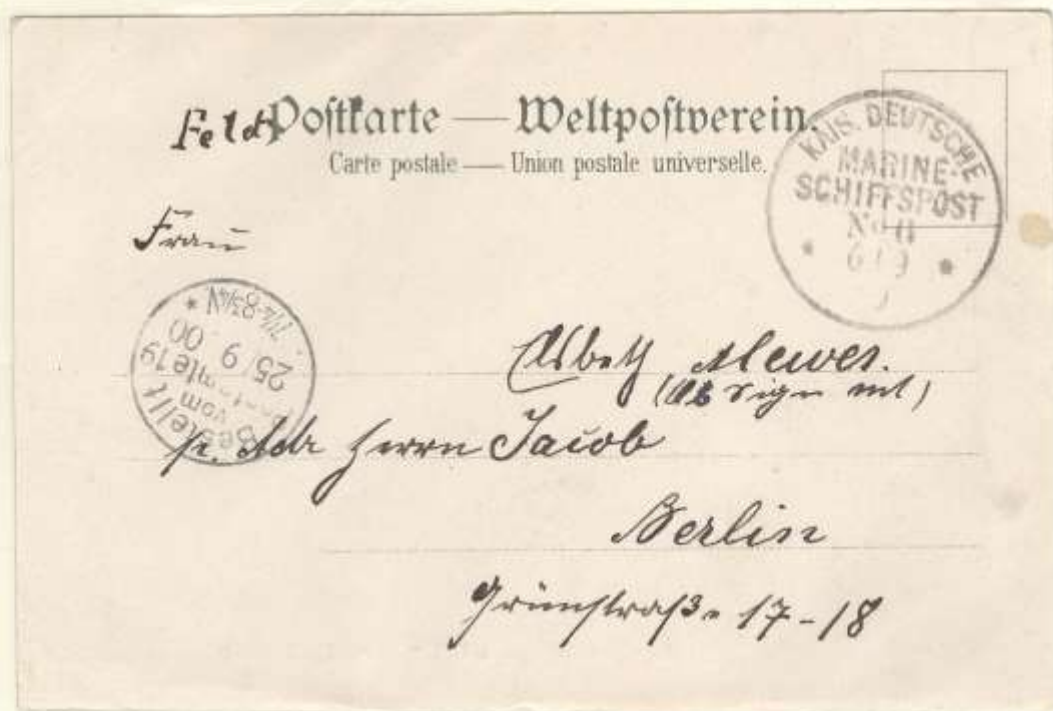 Feld Postkarte — Weltpostverein.
Carte postale — Union postale universelle.
KAIS. DEUTSCHE
MARINE-
SCHIFFSPOST
No
* 6/9 *
Frau
Bestellt
vom
Postamte 19
25/9.00
7½-8¾N *
Elsbeth Mewes.
p. Adr Herrn Jacob
Berlin
Grünstraße 17-18